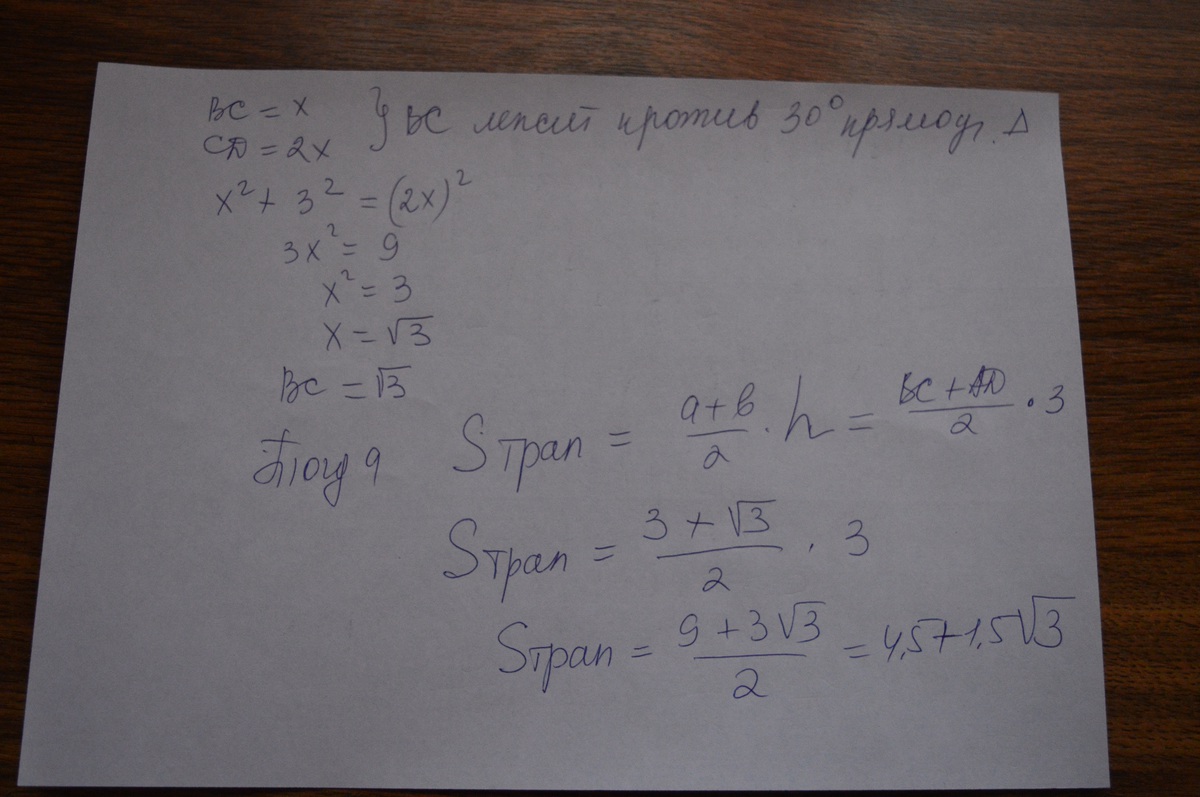 BC = x
CD = 2x } BC лежит против 30° прямоуг. Δ
x² + 3² = (2x)²
3x² = 9
x² = 3
x = √3
BC = √3
Sтрап = (a+b)/2 · h = (BC + AD)/2 · 3
Sтрап = (3 + √3)/2 · 3
Sтрап = (9 + 3√3)/2 = 4,5 + 1,5√3